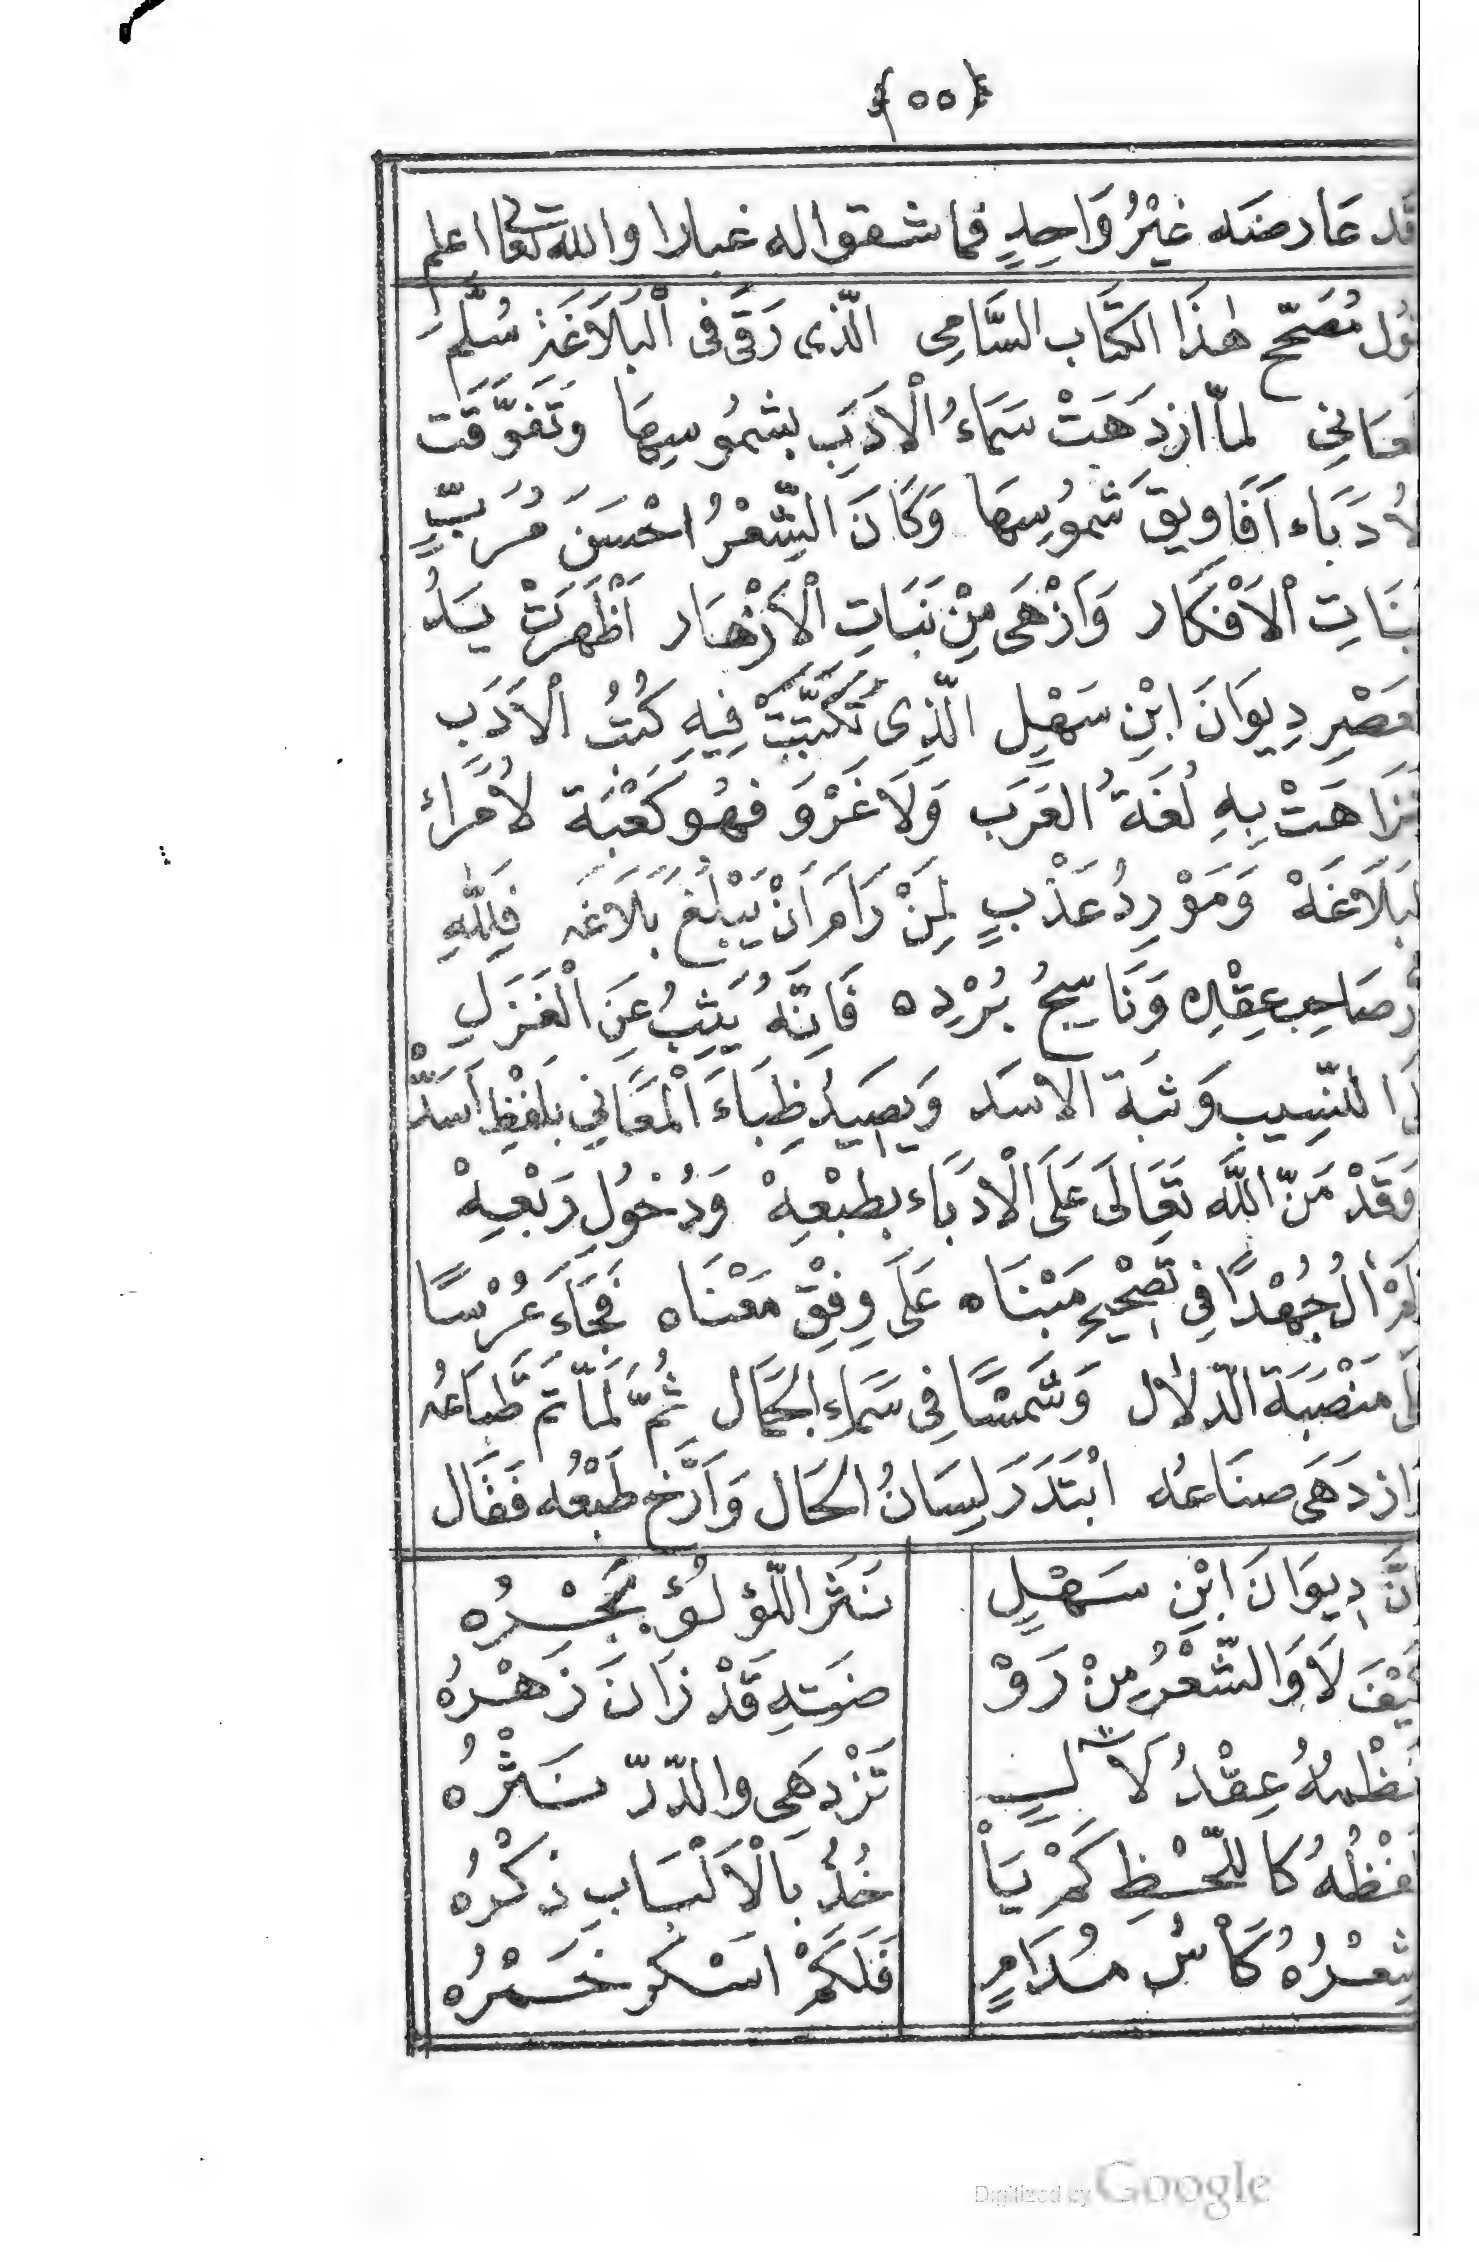 ﴿٥٥﴾
قد عَارضَه غَيْرُ وَاحِدٍ فما شقوا له غبارا والله تعالى اعلم
مُصَحِّحُ هٰذَا الكِتَاب السَّامِى الّذى رَقَى فى الْبَلَاغَةِ سُلَّمَ
لمّا ازدَهَتْ سَمَاءُ الْادَبِ بشمُوسِهَا وَتَفَوَّقَت
اَفَاوِيقَ شَمُوسِهَا وَكَانَ الشِّعْرُ احْسَنَ مُرَبٍّ
الْاَفْكَار وَاَزْهَى مِنْ نَبَاتِ الْاَزْهَار اَظْهَرَتْ يَدُ
دِيوَانَ ابْنِ سَهْلٍ الَّذِى تَكَتَّبَتْ فِيهِ كُتُبُ الْاَدَبِ
بِهِ لُغَةُ العَرَبِ وَلَا غَرْوَ فهُو كَعْبَة لاُمَراءِ
وَمَوْرِدُ عَذْبٍ لِمَنْ رَامَ اَنْ يَبْلُغَ بَلَاغَه فَلِلّٰهِ
صَاحِب عِقْدِه وَنَاسِجُ بُرْدِه فَاِنَّهُ يَثِبُ عَنِ الْغَزَلِ
النّسِيب وَثبَةَ الاسَد وَيصِيدُ ظِبَاءَ الْمَعَانِي بلفْظٍ اَسَدّْ
وَقَدْ مَنّ اللّه تَعَالَى عَلَى الْادَبَاء بطبْعِهْ وَدُخولِ رَبْعِهْ
جُهْدًا فِي تصْحِيحِ مَبْنَاه عَلَى وِفِقْ مَعْنَاه فجَاءَ عُرْسًا
مَنْصَبَة الدّلال وَشَمْسًا فى سَمَاء الجَمَال ثُمّ لمّا تمّ طبَاعُه
وَازدَهَى صنَاعُه ابْتَدَرَ لِسَانُ الحَال وَاَرّخ طَبْعُه فَقَال
اِنَّ دِيوَانَ ابْنِ سَهْلٍ نَثَر اللّؤلؤ بَحْرُه
كَيْفَ لَا وَالشّعْرُ مِنْ رَوْ ضَتِهِ قَدْ زَانَ زَهْرُهُ
نَظْمُهُ عِقْدُ لاٰلٍ تَزْدَهِى والدّرّ نَثْرُه
لَفْظُهُ كاللّحْظِ كَمْ يَأْ خُذُ بِالْاَلْبَابِ ذكْرُه
شِعْرُهُ كَأْسُ مُدَامٍ فَلَكَمْ اسْكَر خَمْرُه
Digitized by Google